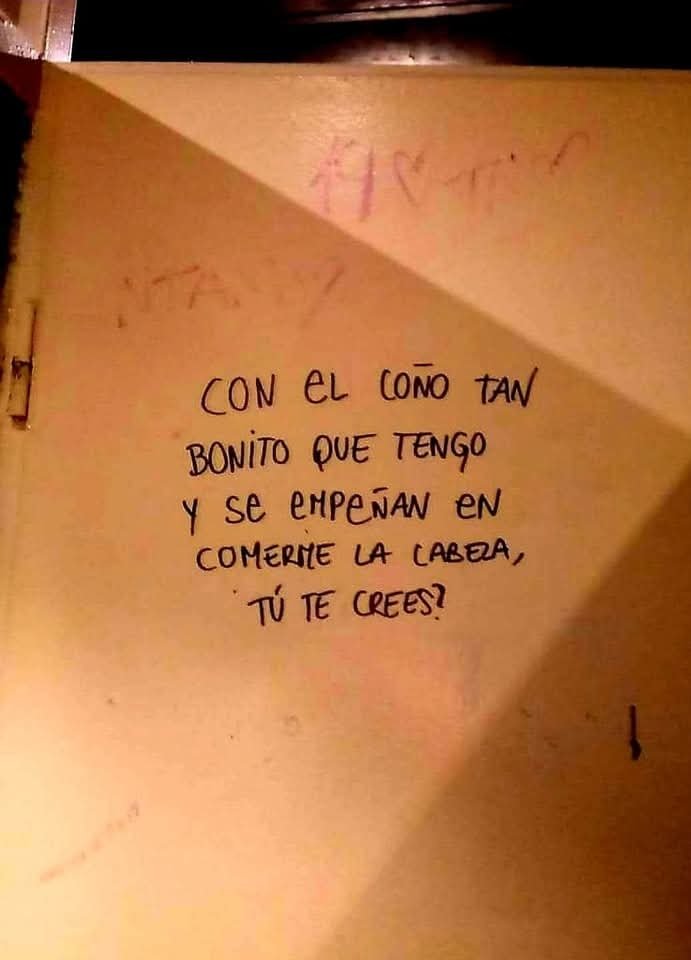 CON EL COÑO TAN
BONITO QUE TENGO
Y SE EMPEÑAN EN
COMERME LA CABEZA,
TÚ TE CREES?